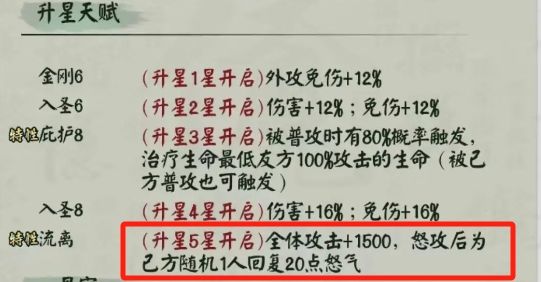 升星天赋
金刚6 (升星1星开启)外攻免伤+12%
入圣6 (升星2星开启)伤害+12%;免伤+12%
特性庇护8 (升星3星开启)被普攻时有80%概率触发,
治疗生命最低友方100%攻击的生命(被己
方普攻也可触发)
入圣8 (升星4星开启)伤害+16%;免伤+16%
特性流离 (升星5星开启)全体攻击+1500,怒攻后为
己方随机1人回复20点怒气